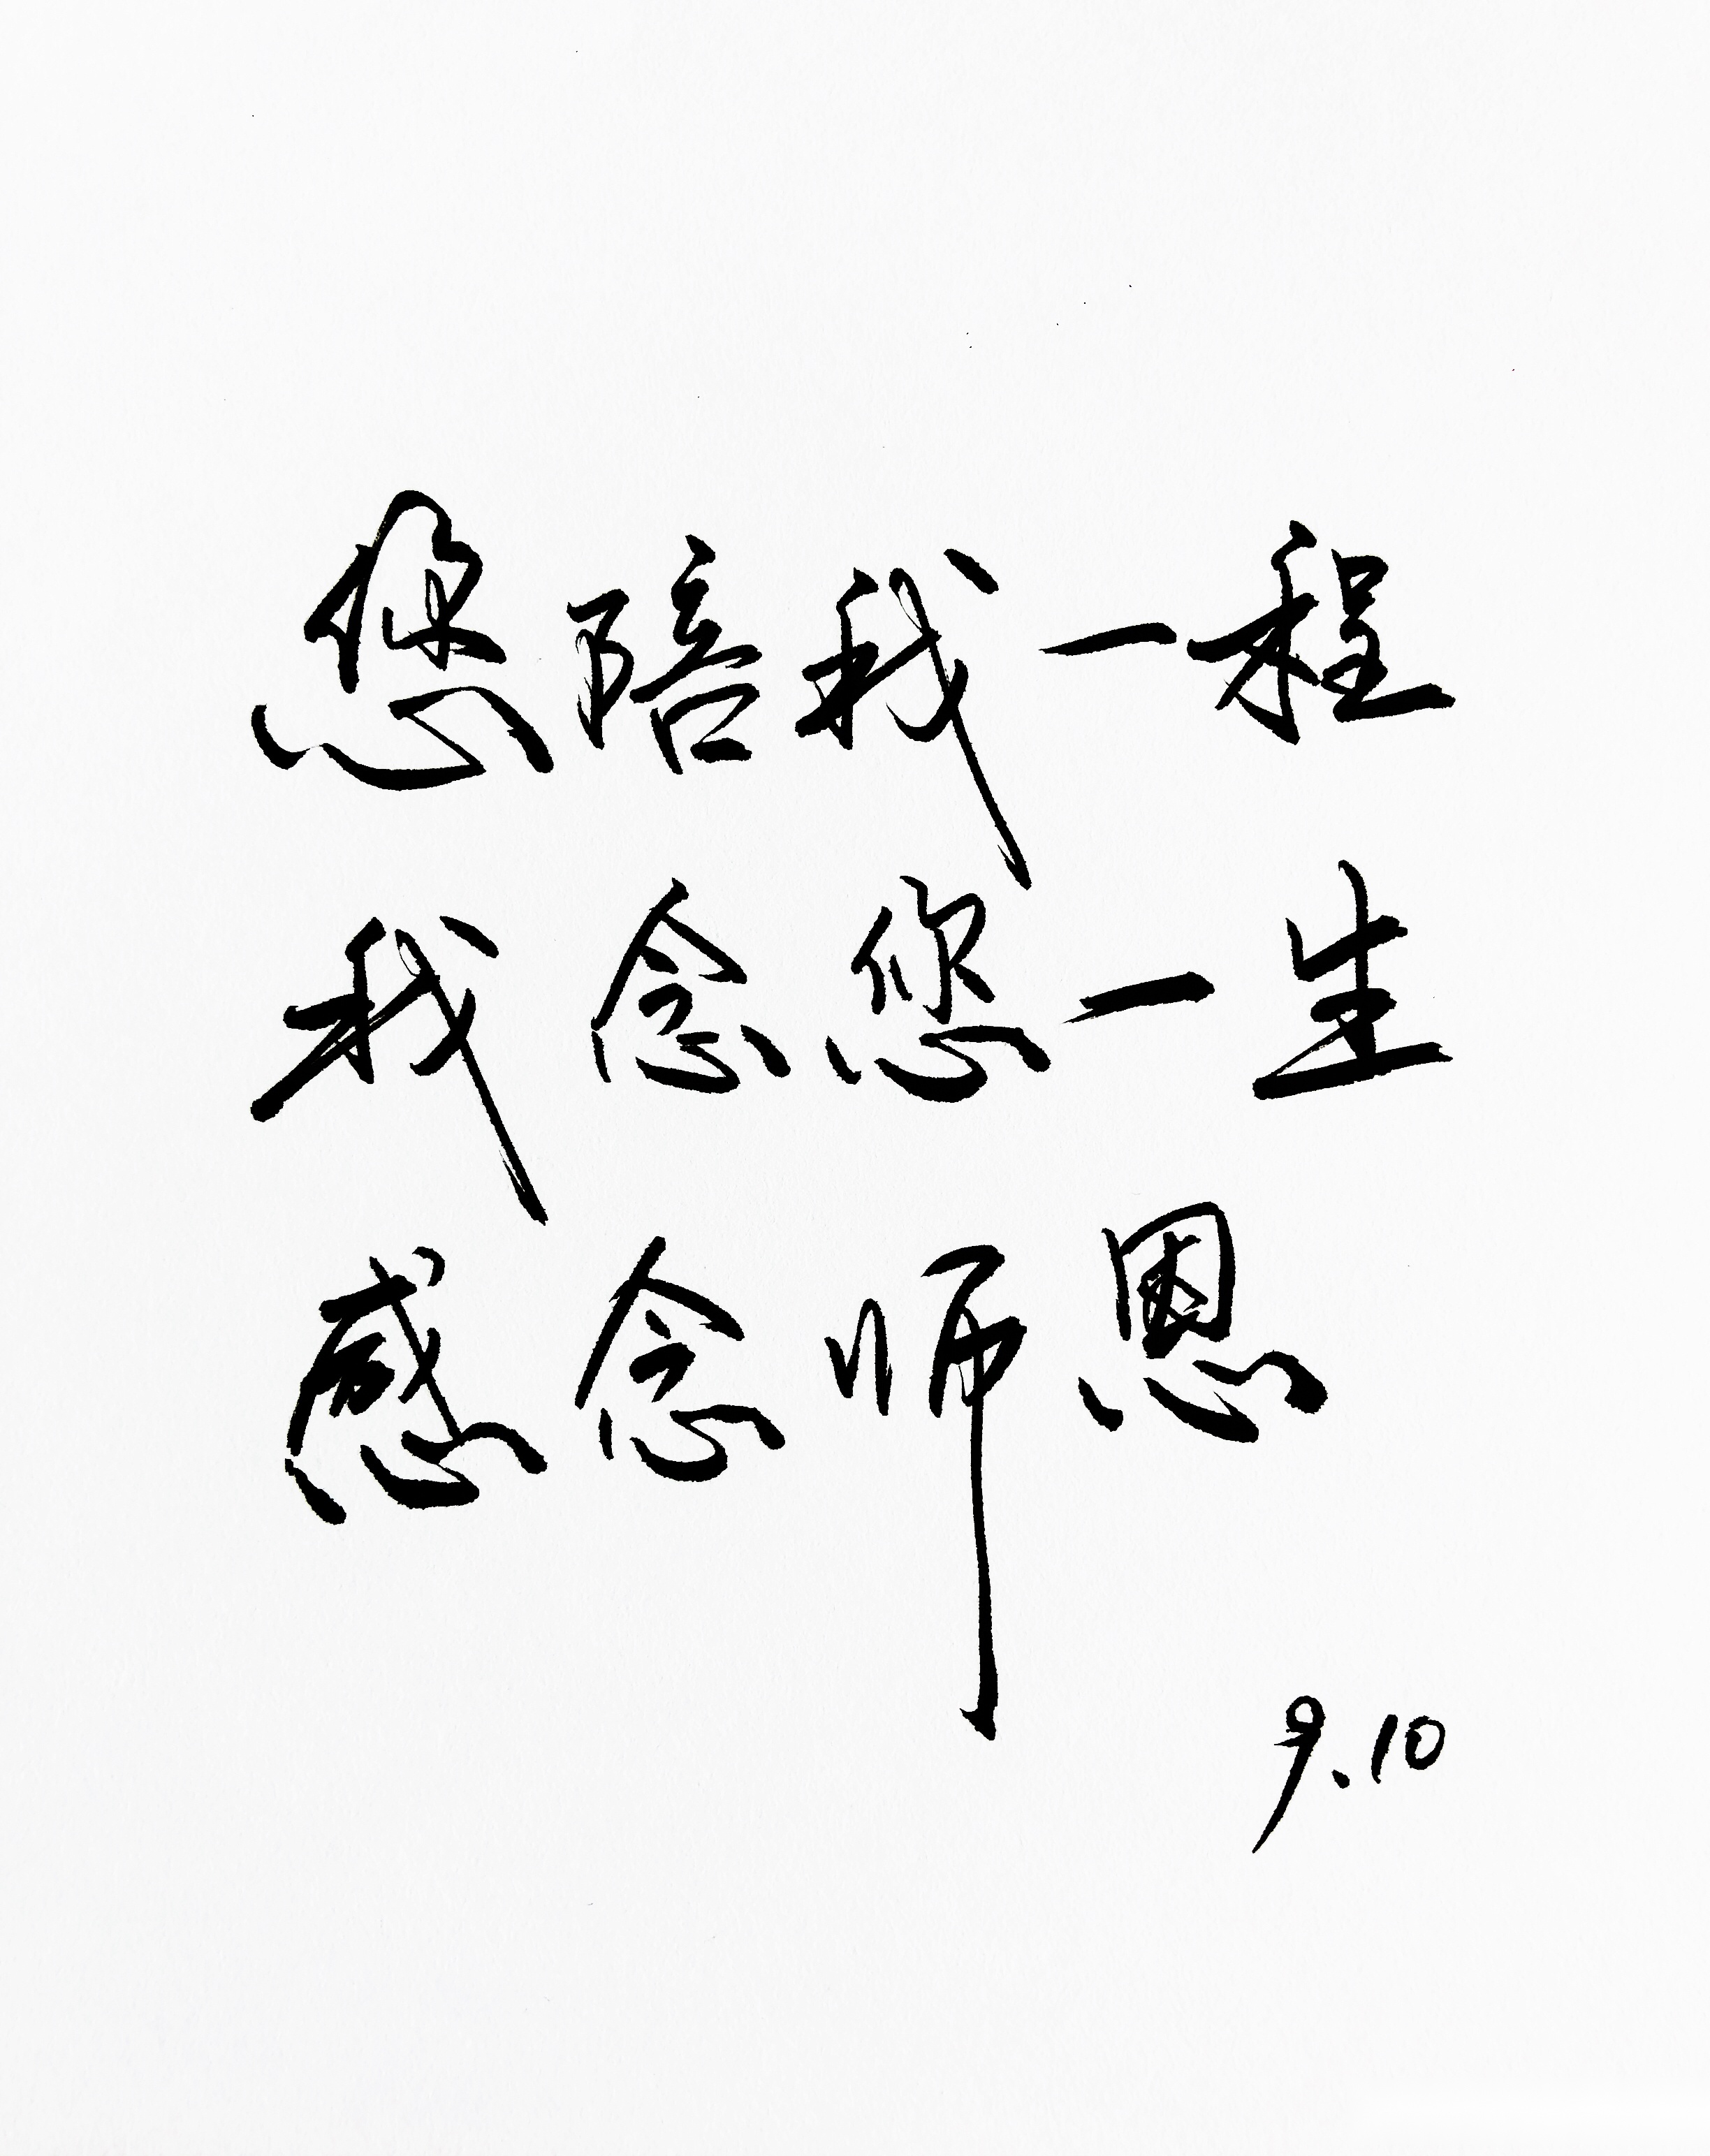 您陪我一程
我念您一生
感念师恩
9.10